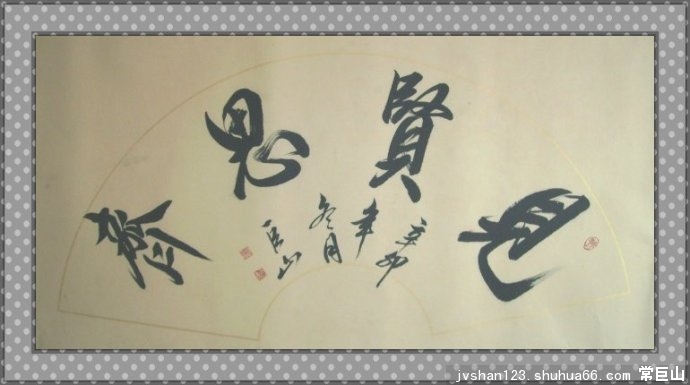 見賢思齊
辛卯
年
冬月
巨山
jvshan123.shuhua66.com 常巨山